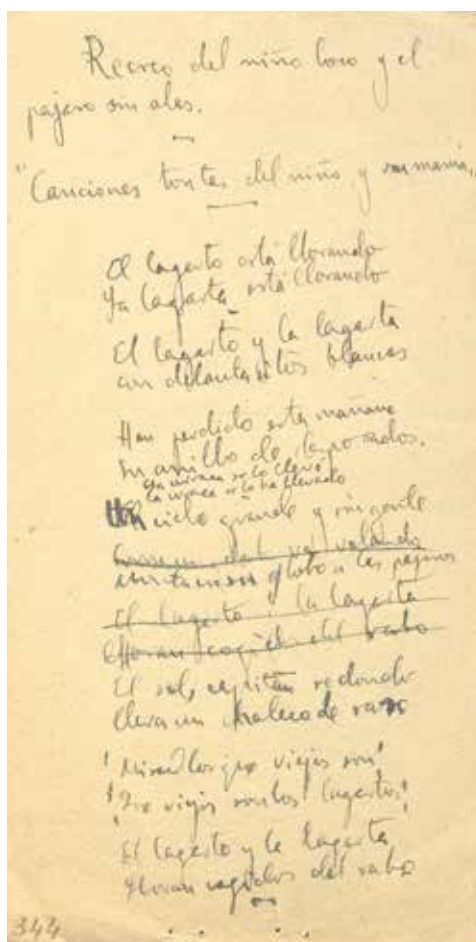 Recreo del niño loco y el
pajaro sin alas.
"Canciones tontas del niño y su mamá"
El lagarto está llorando
La lagarta está llorando
El lagarto y la lagarta
con delantalitos blancos
Han perdido esta mañana
su anillo de desposados.
se lo llevó
la urraca se lo ha llevado
Un cielo grande y sin gente
volando
monta en su globo a los pajaros
El lagarto y la lagarta
lloran cogidos del rabo
El sol, capitan redondo
lleva un chaleco de raso
¡Miradlos que viejos son!
¡Que viejos son los lagartos!
El lagarto y la lagarta
lloran cogidos del rabo
344